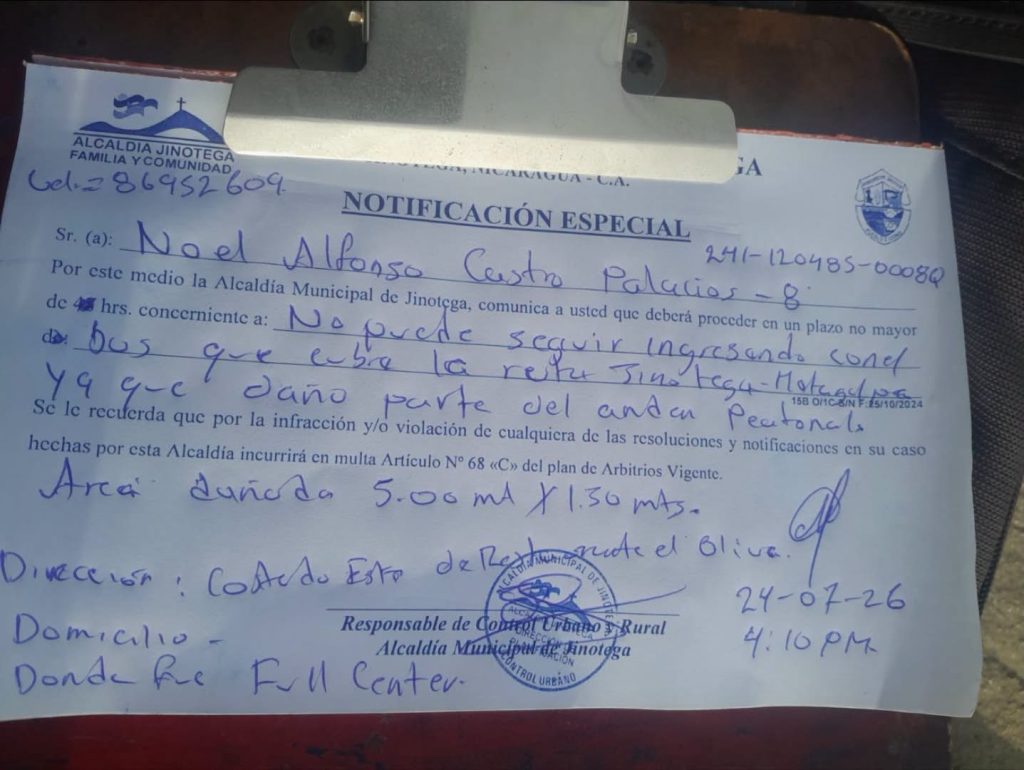 ALCALDIA JINOTEGA
FAMILIA Y COMUNIDAD
JINOTEGA, NICARAGUA - C.A.
GA
Cel.= 86952609
NOTIFICACIÓN ESPECIAL
241-120485-0008Q
Sr. (a): Noel Alfonso Castro Palacios - 8
Por este medio la Alcaldía Municipal de Jinotega, comunica a usted que deberá proceder en un plazo no mayor
de hrs. concerniente a: No puede seguir ingresando con el
bus que cubre la ruta Jinotega-Matagalpa
15B O/1C S/N F:25/10/2024
Ya que daño parte del anden Peatonal.
Se le recuerda que por la infracción y/o violación de cualquiera de las resoluciones y notificaciones en su caso
hechas por esta Alcaldía incurrirá en multa Artículo Nº 68 «C» del plan de Arbitrios Vigente.
Area dañada 5.00 mt X 1.30 mts.
Dirección: Costado Este de Restaurante el Olivo.
24-07-26
4:10 PM
Responsable de Control Urbano y Rural
Alcaldía Municipal de Jinotega
ALCALDIA MUNICIPAL DE JINOTEGA
ALCALDIA JINOTEGA
DIRECCION DE
PLANIFICACIÓN
CONTROL URBANO
Domicilio -
Donde fue Full Center.